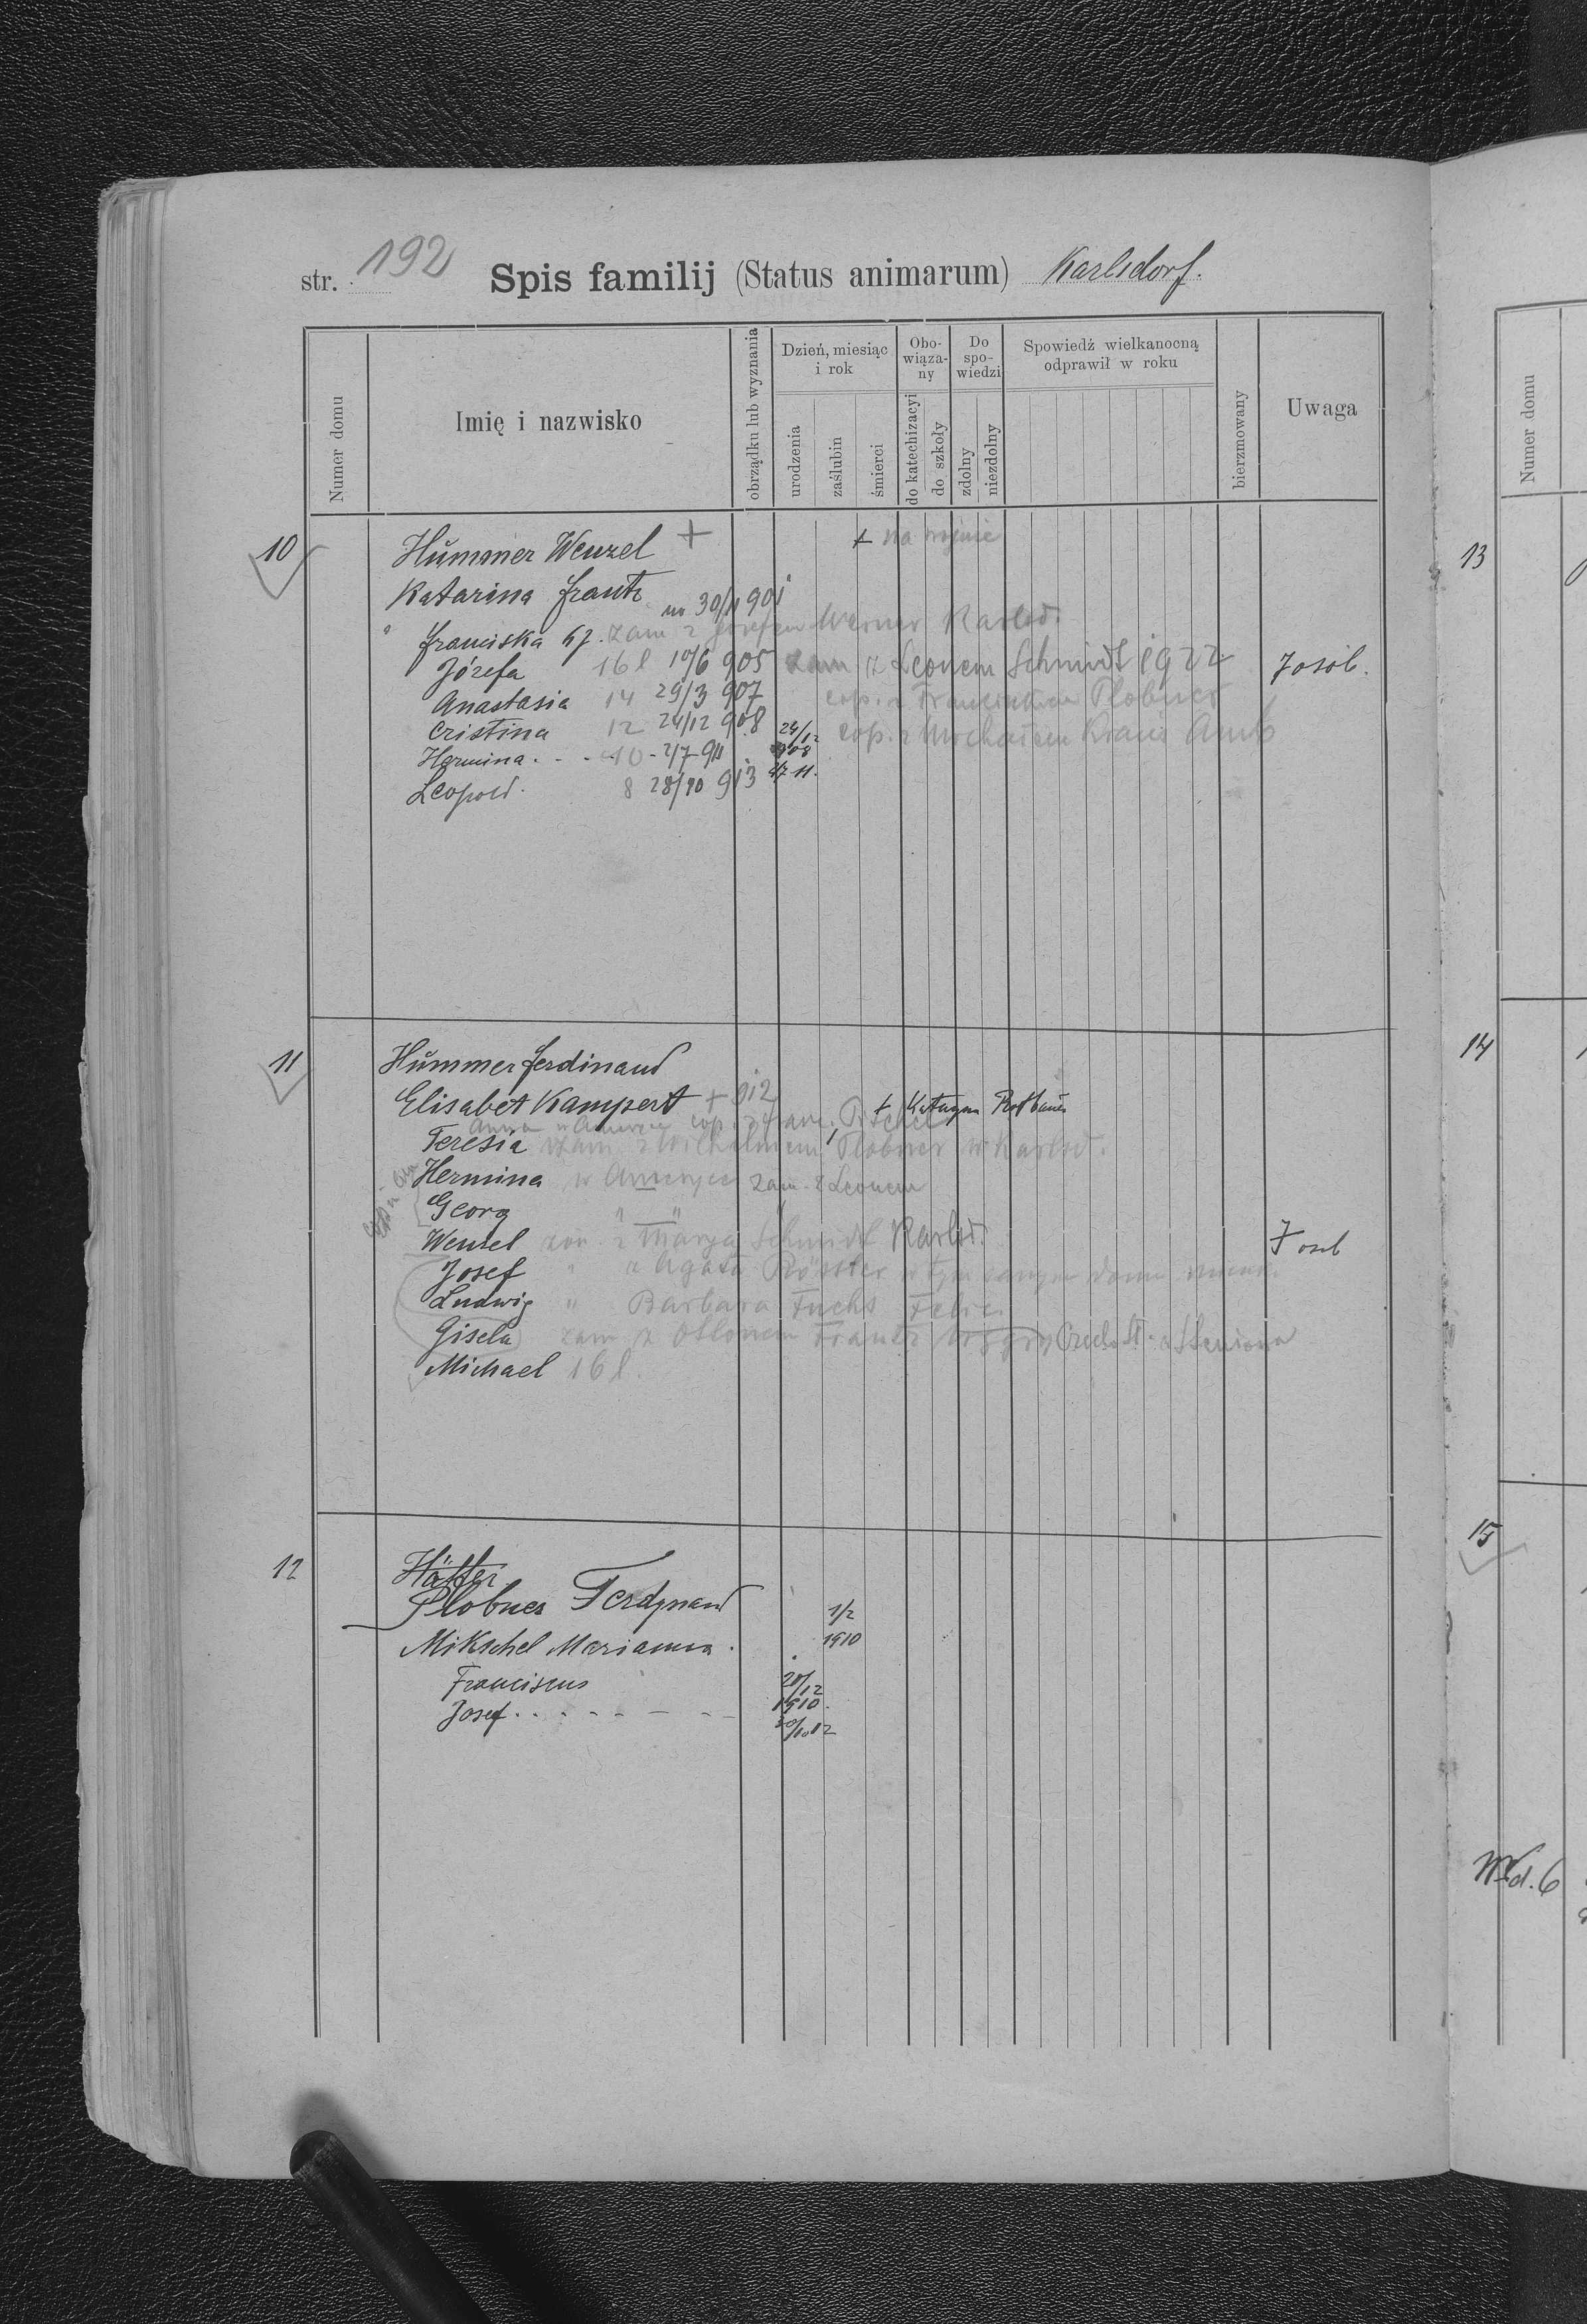 str. 192 Spis familij (Status animarum) Karlsdorf.
Numer domu
Imię i nazwisko
obrządku lub wyznania
Dzień, miesiąc i rok
urodzenia
zaślubin
śmierci
Obo-wiąza-ny
do katechizacyi
do szkoły
Do spo-wiedzi
zdolny
niezdolny
Spowiedź wielkanocną odprawił w roku
bierzmowany
Uwaga
Numer domu
10 Hummer Wenzel + + na wojnie
Katarina Frantz
30/11 901
Franciska zam z Józefem Werner Karlsd.
Józefa 16 l 10/6 905 zam z Leonem Schmidt 1922 7 osób.
Anastasia 14 29/3 907 cop. z Franciszkiem Plobner
Cristina 12 24/12 908 24/12 908 cop. z Michałem
Hermina 10 - 2/7 911 2/7 11.
Leopold. 8 28/10 913
11 Hummer Ferdinand
Elisabet Kampert + 912 + Katarzyna
Anna w Ameryce cop. z Franc.
Teresia zam z Wilhelmem Plobner w Karlsd.
Hermina w Ameryce zam. z Leonem
Georg " "
Wenzel żon. z Marya Schmidt Karlsd. 7 osób
Josef " z Agata Rössler w tym samym domu
Ludwig " Barbara Fuchs
Gisela zam z Frantz
Michael 16 l.
12 Hütter
Plobner Ferdynand 1/2
Mikschel Marianna. 1910
Franciscus 20/12 1910.
Josef 30/10 12
13
14
15